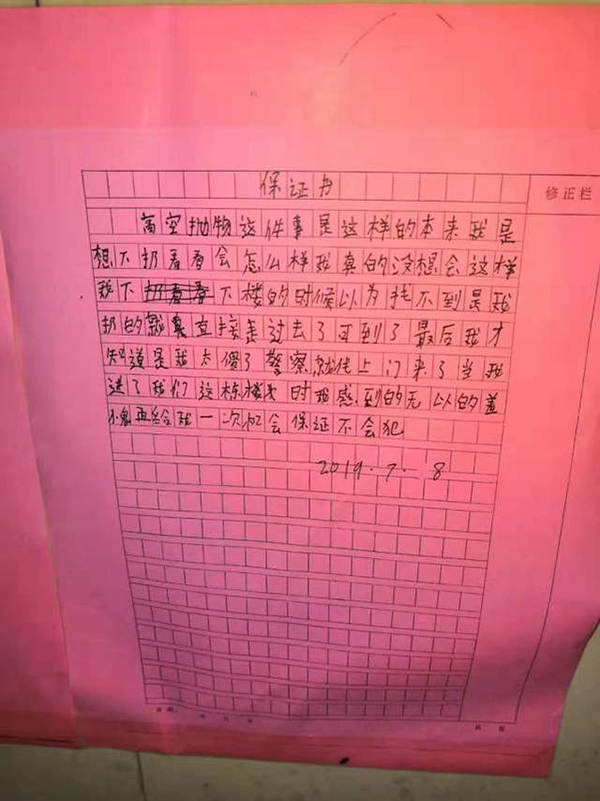 保证书
修正栏
高空抛物这件事是这样的本来我是
想不扔看看会怎么样我真的没想会这样
我下楼的时候以为找不到是我
扔的就直接走过去了可到了最后我才
知道是我太傻了警察就找上门来了当我
进了我们这栋楼时我感到的无以的羞
愧再给我一次机会保证不会犯
2019.7.8